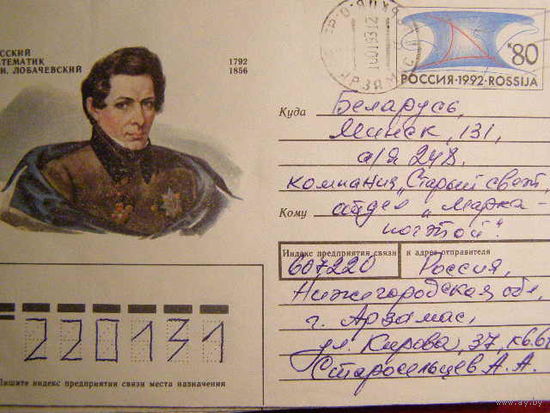 ССКИЙ
ТЕМАТИК
И. ЛОБАЧЕВСКИЙ
1792
1856
АРЗАМАС
80
РОССИЯ·1992·ROSSIJA
Куда Беларусь,
Минск, 131,
а/я 248,
компания „Старый свет
отдел „Марка-
почтой."
Кому
Индекс предприятия связи и адрес отправителя
607220 Россия,
Нижегородская обл,
г. Арзамас,
ул. Кирова, 37, кв.6
Старосельцев А.А.
220131
Пишите индекс предприятия связи места назначения
www.ay.by